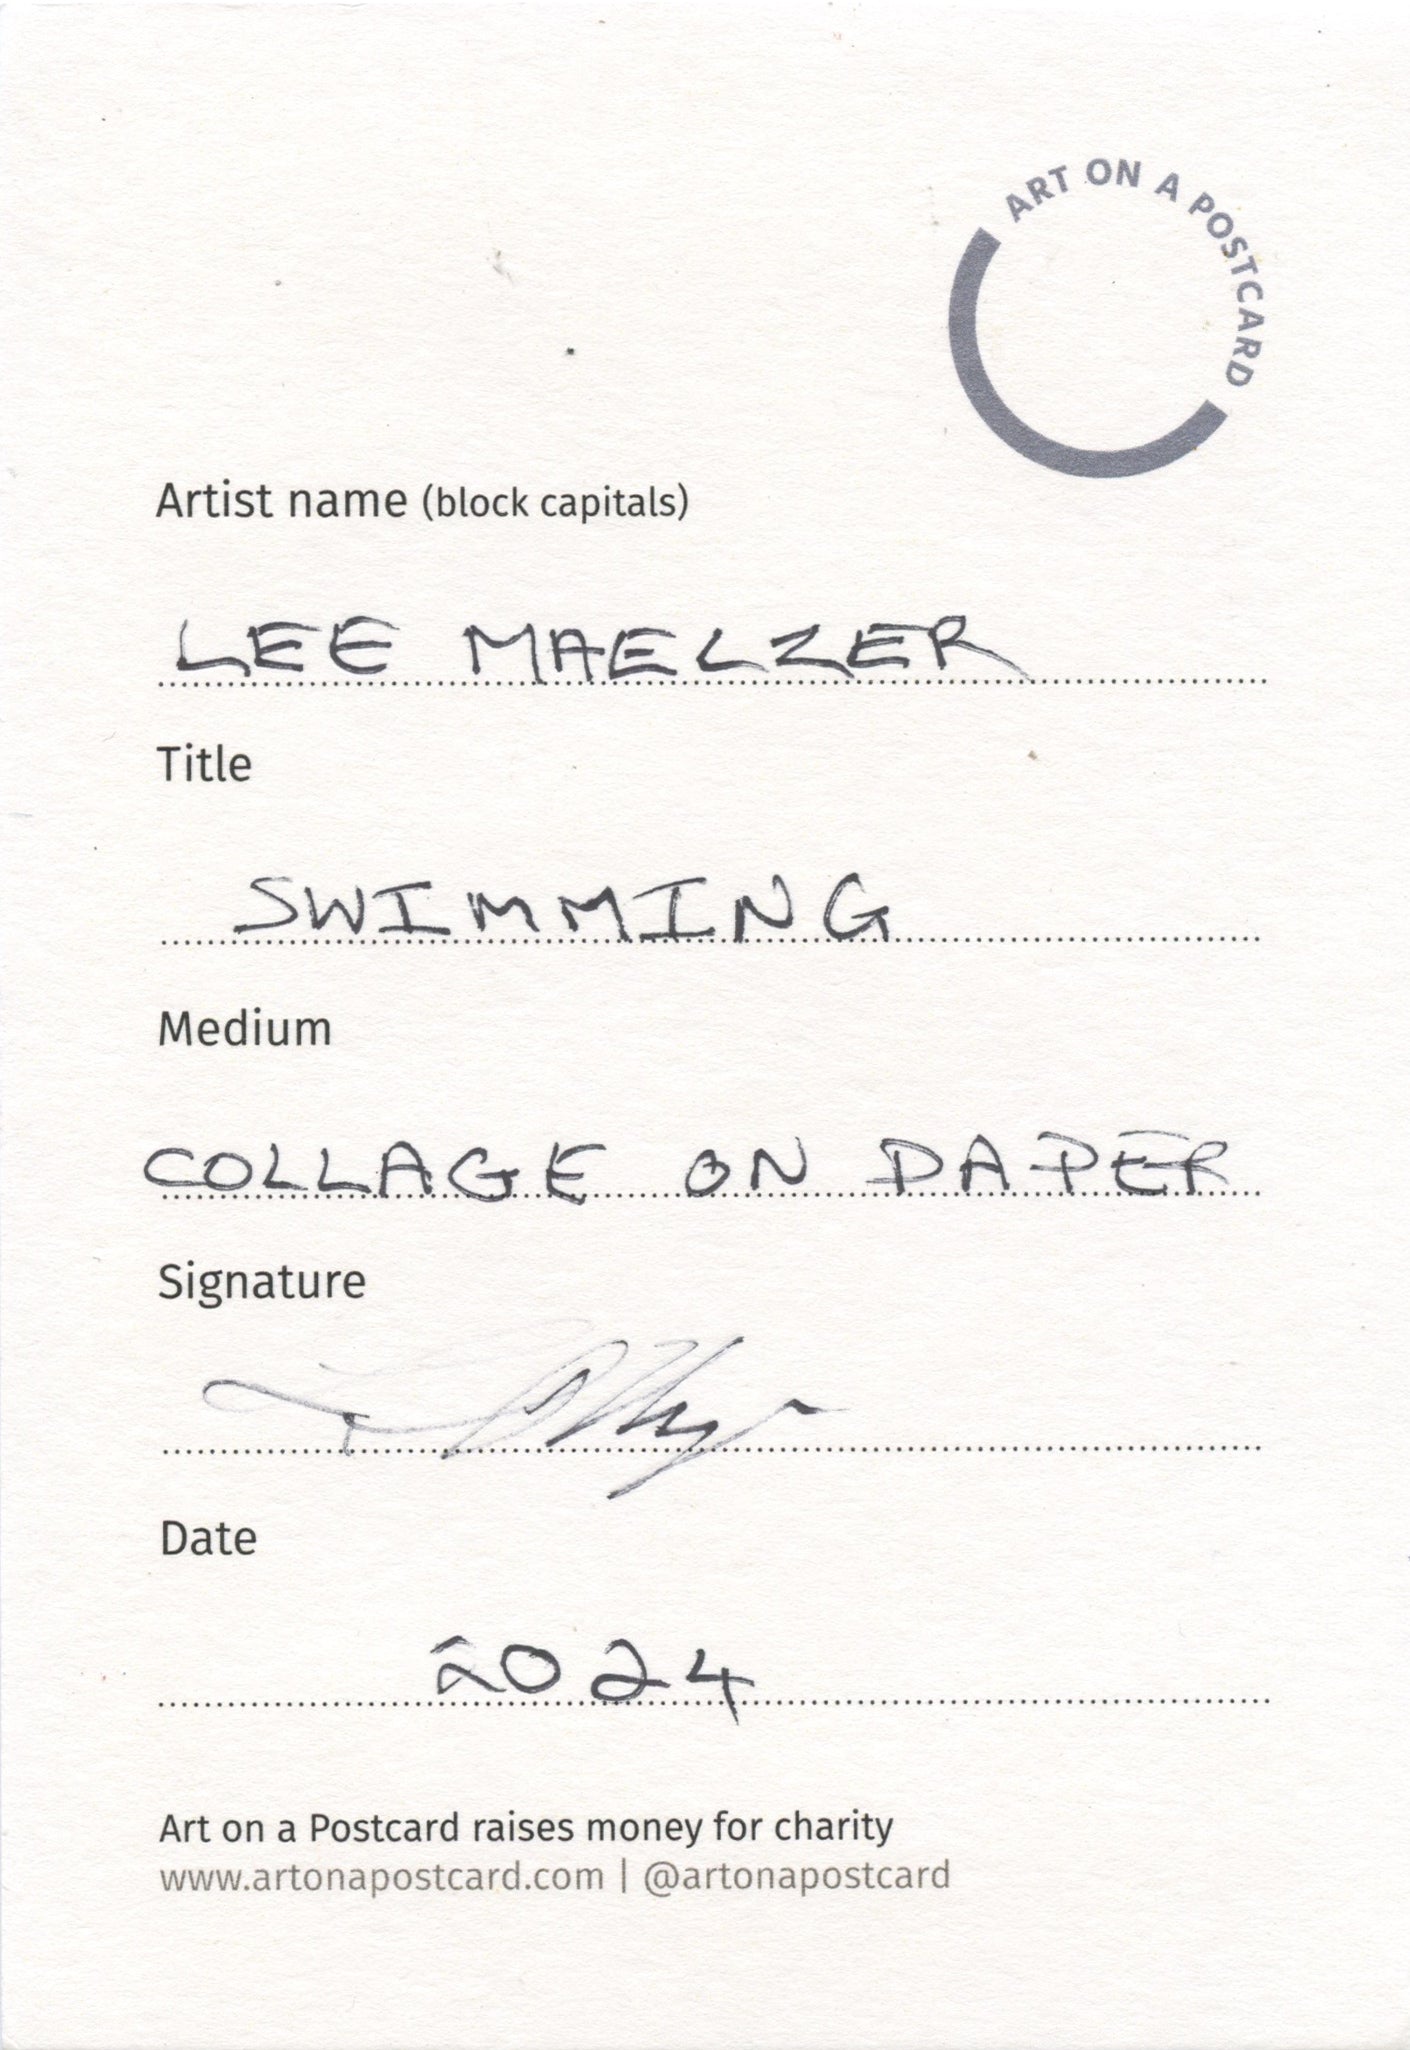 ART ON A POSTCARD
Artist name (block capitals)
LEE MAELZER
Title
SWIMMING
Medium
COLLAGE ON PAPER
Signature
Date
2024
Art on a Postcard raises money for charity
www.artonapostcard.com | @artonapostcard